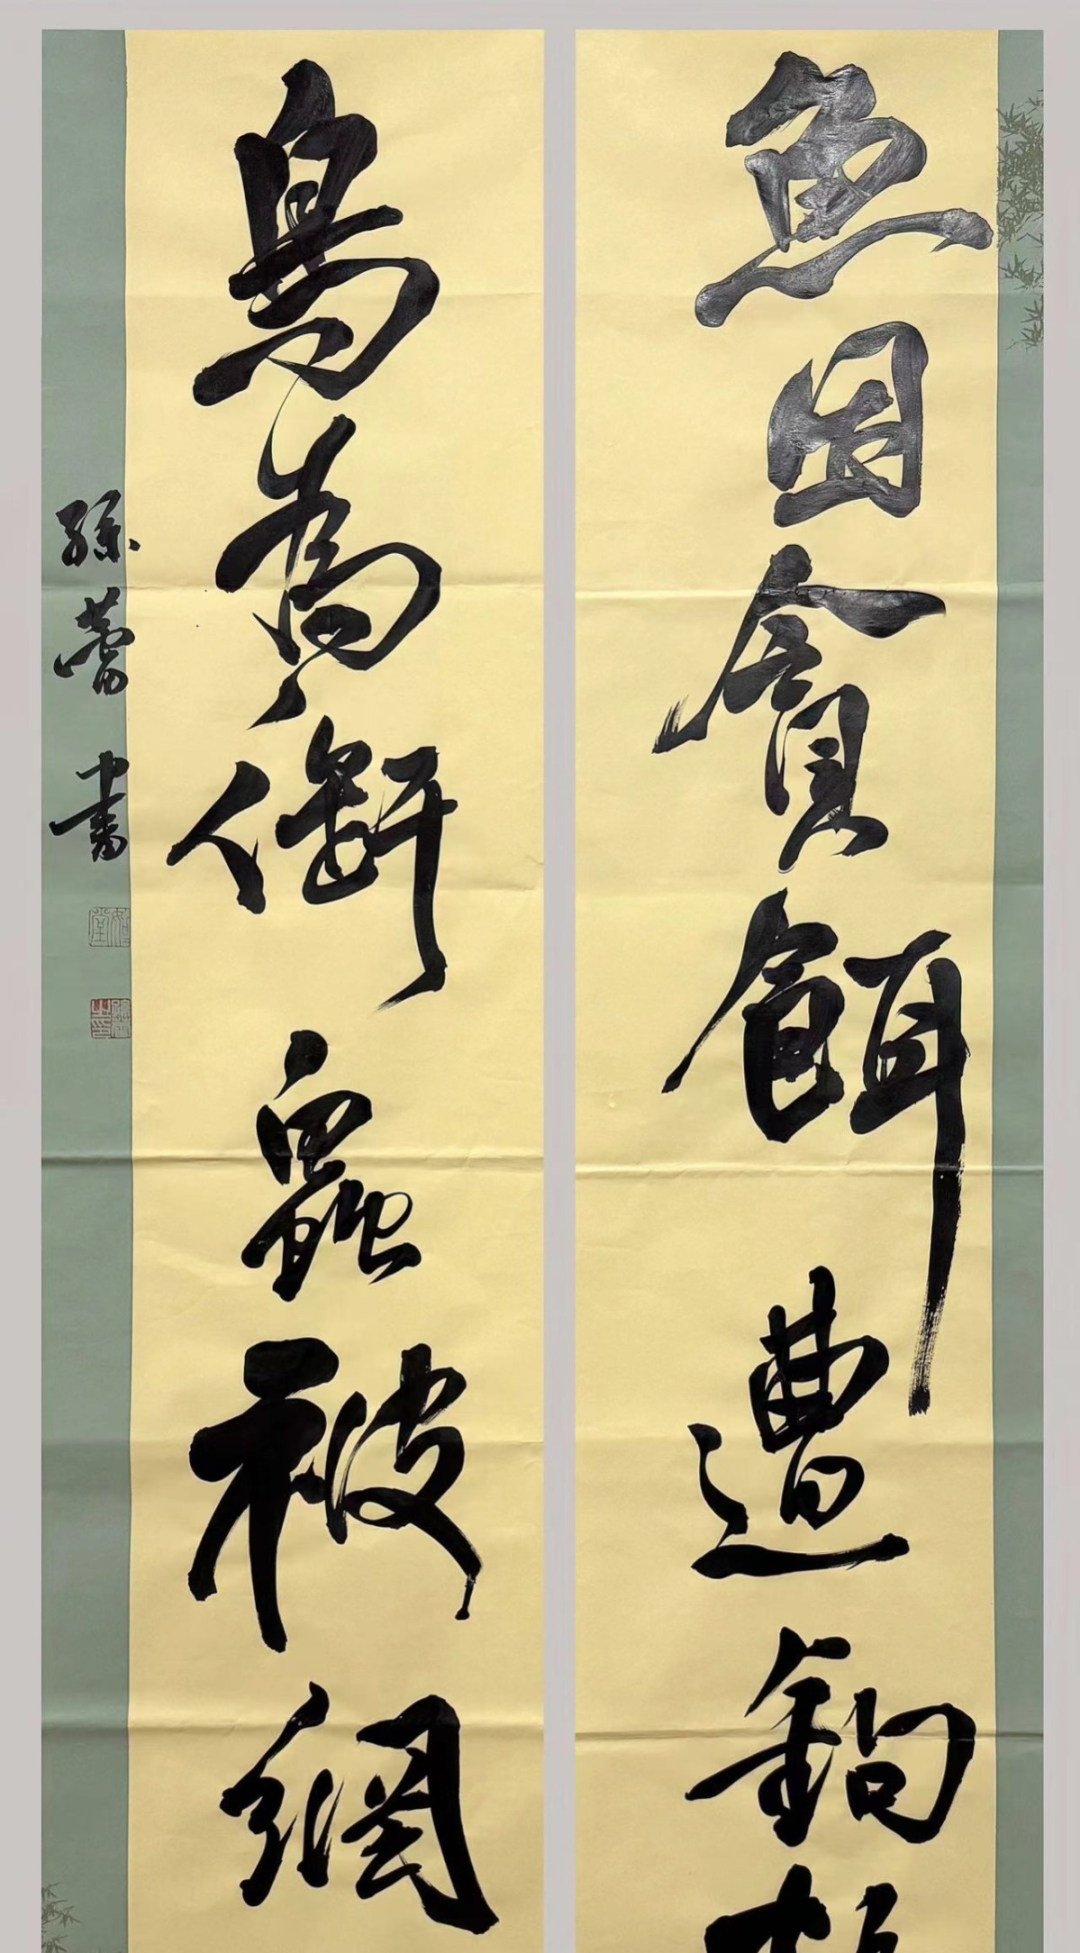 魚因貪餌遭鉤
鳥為銜蟲被網
孫蕾書